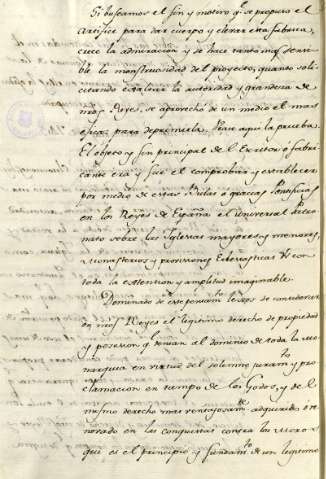 Si buscamos el fin y motivo q.e se propuso el
Artifice para dar cuerpo y elevar esta fabrica,
crece la admiracion y se hace tanto mas
ble la monstruosidad del proyecto, quanto soli-
citando exaltar la autoridad y grandeza de
nros Reyes, se aprovechó de un medio el mas
eficaz para deprimirla. Vease aqui la prueba.
El objeto y fin principal de el Escritor ó fabri-
cante era y fue el comprobar y establecer
por medio de estas Bulas ó gracias Pontificias
en los Reyes de España el universal Patro-
nato sobre las Iglesias mayores y menores,
Monasterios y provisiones Eclesiasticas con
toda la extension y amplitud imaginable.
Dominado de este pensam.to leexp.
en nros Reyes el legitimo derecho de propiedad
y posesion q.e tenian al dominio de toda la Mo-
narquia en virtud del solemne juram.to y pro-
clamacion en tiempo de los Godos, y de el
mismo derecho mas ventajosam.te adquirido ó re-
novado en las conquistas contra los Moros
que es el principio y fundam.to de un legitimo